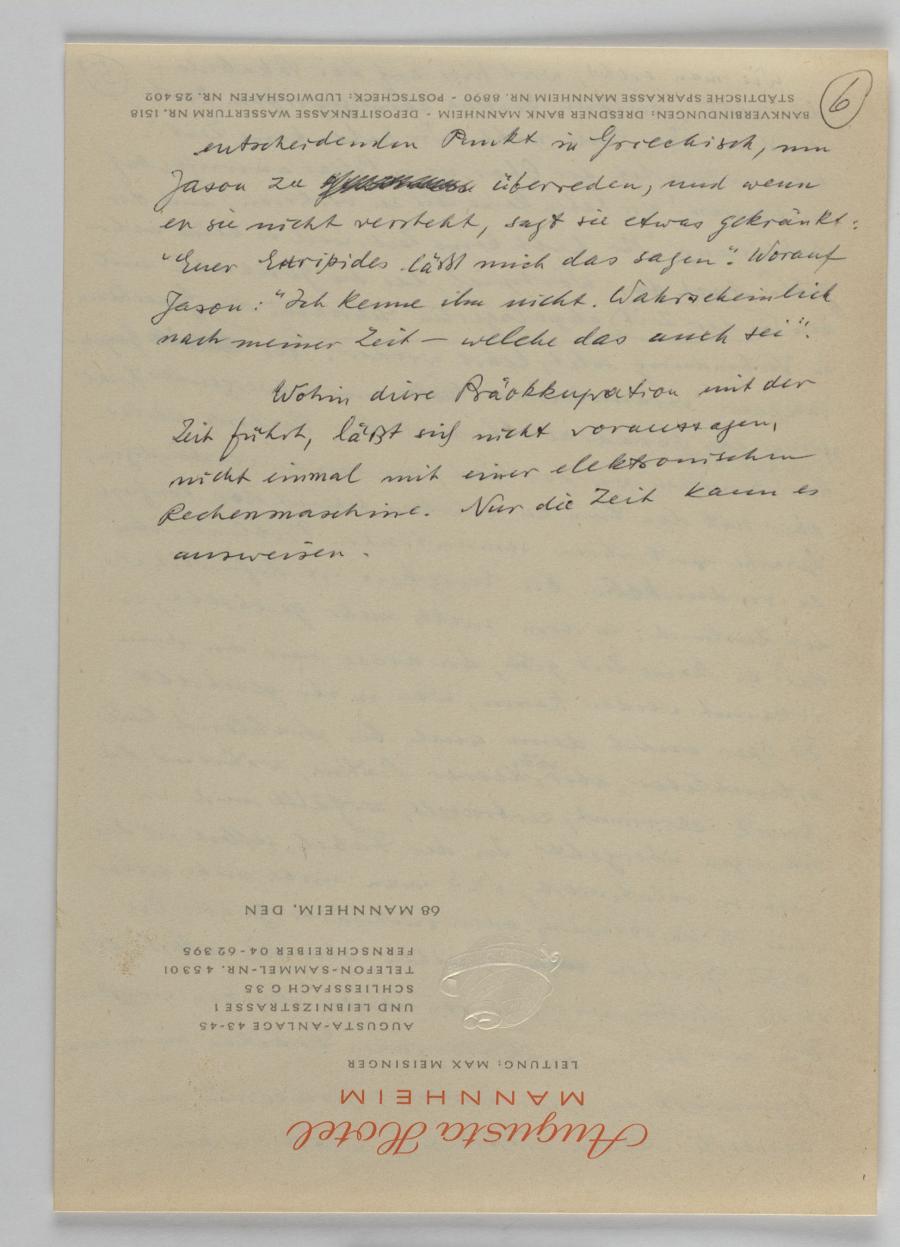 6
BANKVERBINDUNGEN: DRESDNER BANK MANNHEIM - DEPOSITENKASSE WASSERTURM NR. 1518
STÄDTISCHE SPARKASSE MANNHEIM NR. 8890 - POSTSCHECK: LUDWIGSHAFEN NR. 25402
entscheidenden Punkt in Griechisch, um
Jason zu überreden, und wenn
er sie nicht versteht, sagt sie etwas gekränkt:
"Euer Euripides läßt mich das sagen". Worauf
Jason: "Ich kenne ihn nicht. Wahrscheinlich
nach meiner Zeit – welche das auch sei".
Wohin diese Präokkupation mit der
Zeit führt, läßt sich nicht voraussagen,
nicht einmal mit einer elektronischen
Rechenmaschine. Nur die Zeit kann es
ausweisen.
Augusta Hotel
MANNHEIM
LEITUNG: MAX MEISINGER
AUGUSTA-ANLAGE 43-45
UND LEIBNIZSTRASSE 1
SCHLIESSFACH G 35
TELEFON-SAMMEL-NR. 45301
FERNSCHREIBER 04-62395
68 MANNHEIM, DEN